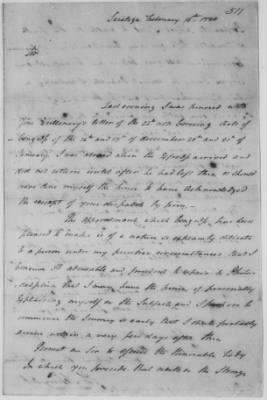 511
Saratoga February 1st 1780
Sir
Last evening I was honored with
your Excellency's letter of the 25th ult covering Acts of
Congress of the and 17th of December 20th and 21st of
January. I was abroad when the Express arrived and
did not return until after he had left this or should
have done myself the honor to have acknowledged
the receipt of your dispatch by him.
The appointment which Congress has been
pleased to make is of a nature so extremely delicate
to a person under my peculiar circumstances that I
it advisable and to repair to Phila-
delphia that I may have the honor of personally
explaining myself on the Subject, and I propose to
commence the Journey so early that I shall probably
arrive within a very few days after this
Permit me Sir to assure the honorable body
in which you preside that under the Strong